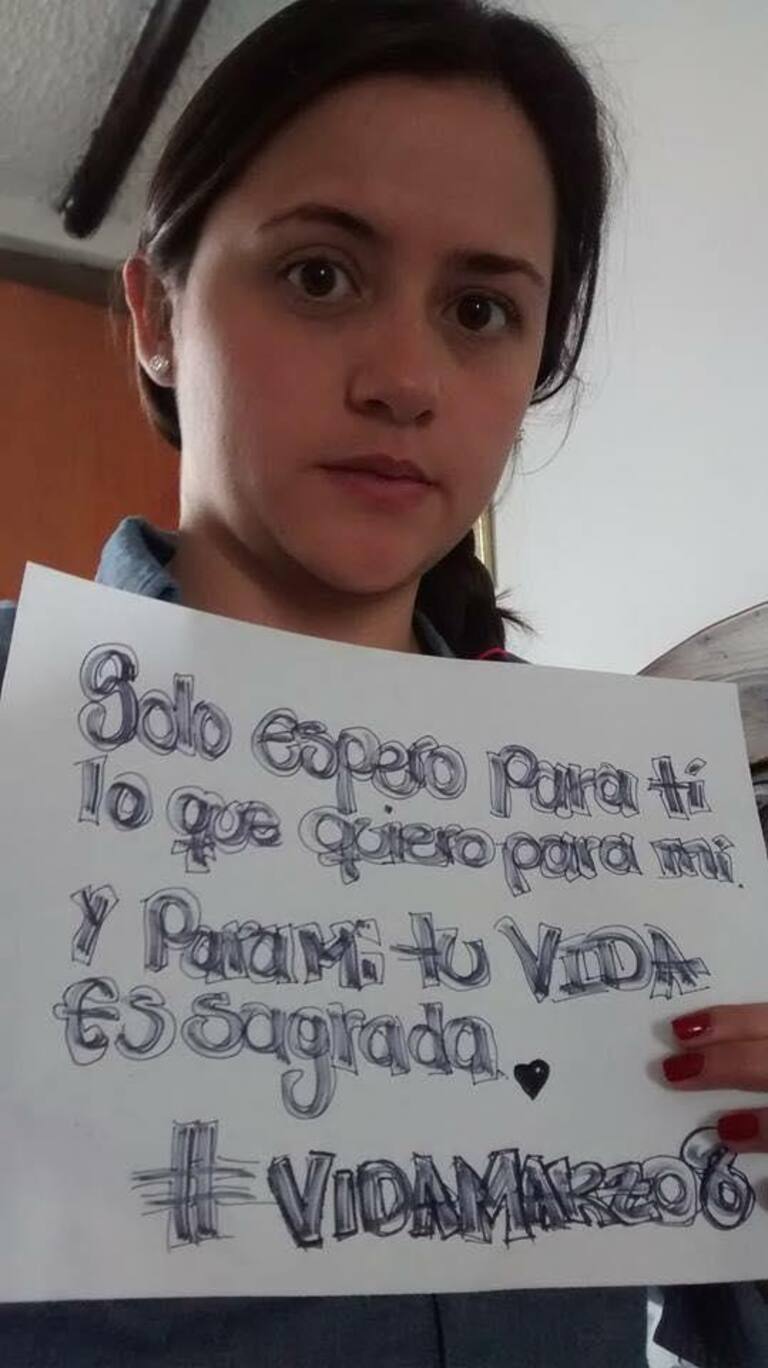 Solo espero para tí
lo que quiero para mí.
Y Para Mi tu VIDA
Es sagrada.
#VIDAMARZO8